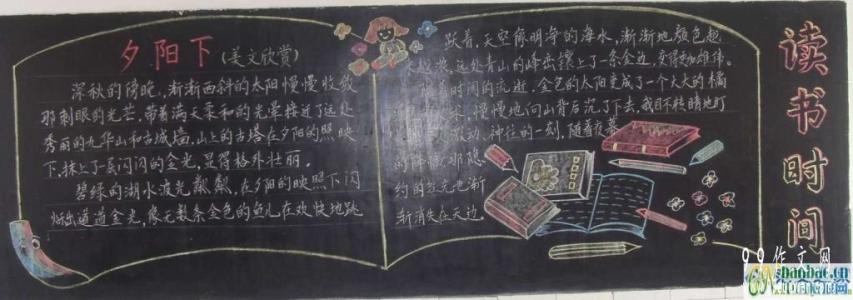 夕阳下(美文欣赏)
深秋的傍晚,渐渐西斜的太阳慢慢收敛
那刺眼的光芒,带着满天柔和的光晕挂近了远处
秀丽的九华山和古城墙,山上的古塔在夕阳的照映
下,抹上了一层闪闪的金光,显得格外壮丽。
碧绿的湖水波光粼粼,在夕阳的映照下闪
烁出道道金光,像无数条金色的鱼儿在欢快地跳
跃着,天空像明净的海水,渐渐地颜色越
来越淡,远处青山的峰峦镶上了一条金边,变得更加雄伟。
时间的流逝,金色的太阳变成了一个大大的橘
慢慢地向山背后沉了下去,我目不转睛地盯
激动、神往的一刻,随着夜幕
的降临,那隐
约的红光也渐
渐消失在天边。
读书时间
作文网
banbao.cn